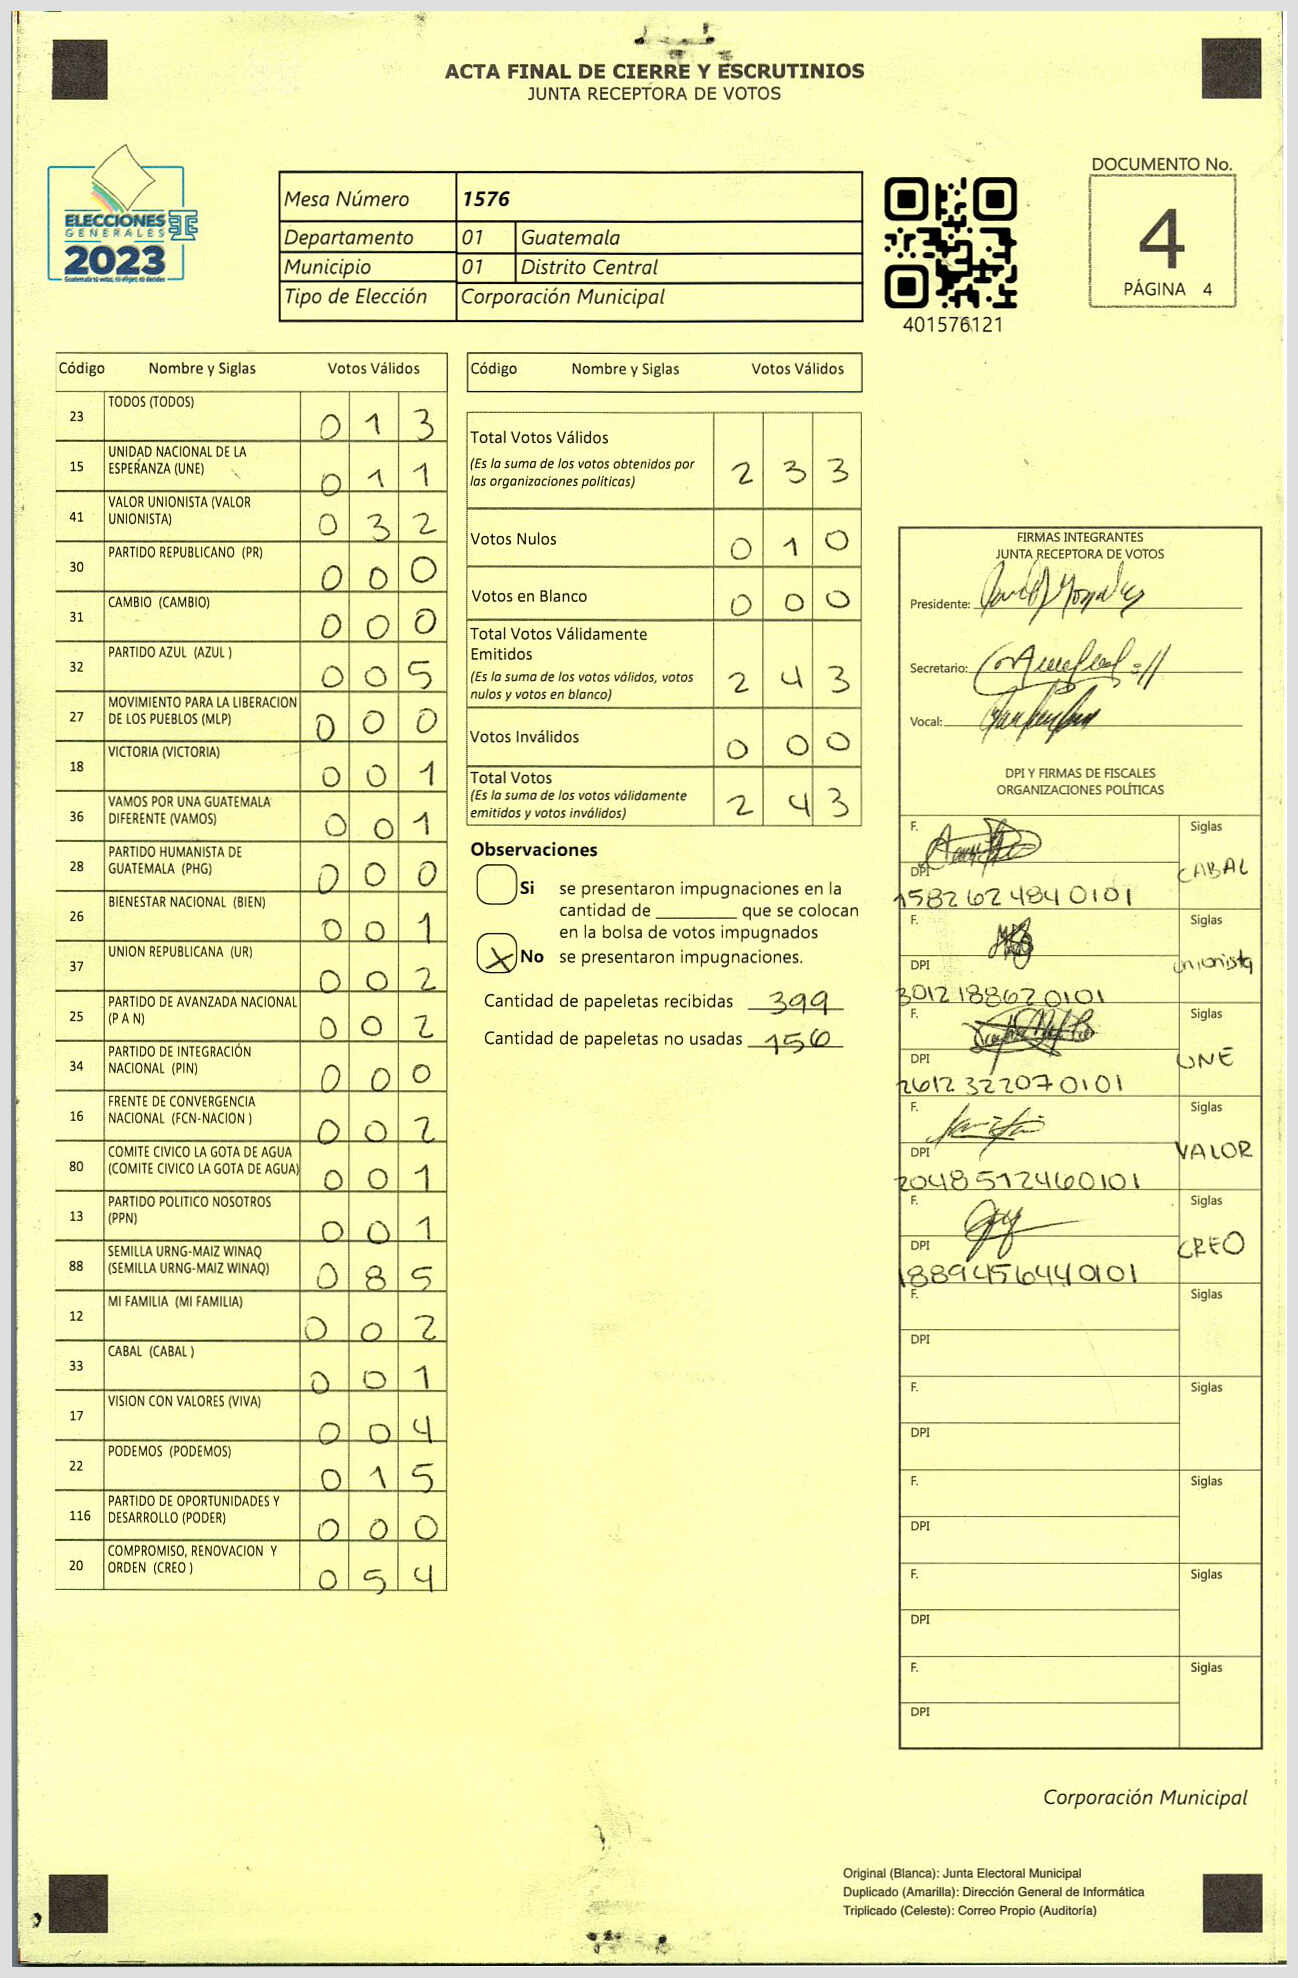 ACTA FINAL DE CIERRE Y ESCRUTINIOS
JUNTA RECEPTORA DE VOTOS
ELECCIONES
GENERALES
2023
Guatemala tú votas, tú eliges, tú decides
Mesa Número 1576
Departamento 01 Guatemala
Municipio 01 Distrito Central
Tipo de Elección Corporación Municipal
401576121
DOCUMENTO No.
4
PÁGINA 4
Código Nombre y Siglas Votos Válidos
23 TODOS (TODOS) 0 1 3
15 UNIDAD NACIONAL DE LA
ESPERANZA (UNE) 0 1 1
41 VALOR UNIONISTA (VALOR
UNIONISTA) 0 3 2
30 PARTIDO REPUBLICANO (PR) 0 0 0
31 CAMBIO (CAMBIO) 0 0 0
32 PARTIDO AZUL (AZUL ) 0 0 5
27 MOVIMIENTO PARA LA LIBERACION
DE LOS PUEBLOS (MLP) 0 0 0
18 VICTORIA (VICTORIA) 0 0 1
36 VAMOS POR UNA GUATEMALA
DIFERENTE (VAMOS) 0 0 1
28 PARTIDO HUMANISTA DE
GUATEMALA (PHG) 0 0 0
26 BIENESTAR NACIONAL (BIEN) 0 0 1
37 UNION REPUBLICANA (UR) 0 0 2
25 PARTIDO DE AVANZADA NACIONAL
(P A N) 0 0 2
34 PARTIDO DE INTEGRACIÓN
NACIONAL (PIN) 0 0 0
16 FRENTE DE CONVERGENCIA
NACIONAL (FCN-NACION ) 0 0 2
80 COMITE CIVICO LA GOTA DE AGUA
(COMITE CIVICO LA GOTA DE AGUA) 0 0 1
13 PARTIDO POLITICO NOSOTROS
(PPN) 0 0 1
88 SEMILLA URNG-MAIZ WINAQ
(SEMILLA URNG-MAIZ WINAQ) 0 8 5
12 MI FAMILIA (MI FAMILIA) 0 0 2
33 CABAL (CABAL ) 0 0 1
17 VISION CON VALORES (VIVA) 0 0 4
22 PODEMOS (PODEMOS) 0 1 5
116 PARTIDO DE OPORTUNIDADES Y
DESARROLLO (PODER) 0 0 0
20 COMPROMISO, RENOVACION Y
ORDEN (CREO ) 0 5 4
Código Nombre y Siglas Votos Válidos
Total Votos Válidos
(Es la suma de los votos obtenidos por
las organizaciones políticas) 2 3 3
Votos Nulos 0 1 0
Votos en Blanco 0 0 0
Total Votos Válidamente
Emitidos
(Es la suma de los votos válidos, votos
nulos y votos en blanco) 2 4 3
Votos Inválidos 0 0 0
Total Votos
(Es la suma de los votos válidamente
emitidos y votos inválidos) 2 4 3
Observaciones
Si se presentaron impugnaciones en la
cantidad de ________ que se colocan
en la bolsa de votos impugnados
X No se presentaron impugnaciones.
Cantidad de papeletas recibidas 399
Cantidad de papeletas no usadas 156
FIRMAS INTEGRANTES
JUNTA RECEPTORA DE VOTOS
Presidente:
Secretario:
Vocal:
DPI Y FIRMAS DE FISCALES
ORGANIZACIONES POLÍTICAS
F. Siglas
CABAL
DPI
1582624840101
F. Siglas
Unionista
DPI
3012188620101
F. Siglas
UNE
DPI
2612322070101
F. Siglas
VALOR
DPI
2048512460101
F. Siglas
CREO
DPI
1889456440101
F. Siglas
DPI
F. Siglas
DPI
F. Siglas
DPI
F. Siglas
DPI
F. Siglas
DPI
Corporación Municipal
Original (Blanca): Junta Electoral Municipal
Duplicado (Amarilla): Dirección General de Informática
Triplicado (Celeste): Correo Propio (Auditoría)